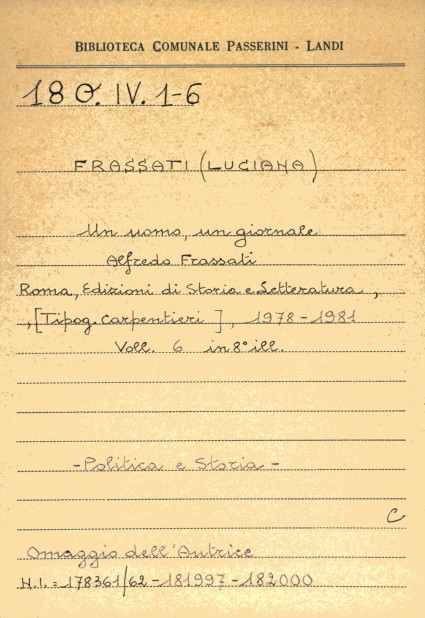 BIBLIOTECA COMUNALE PASSERINI - LANDI
18 O. IV. 1-6
FRASSATI (LUCIANA)
Un uomo, un giornale
Alfredo Frassati
Roma, Edizioni di Storia e Letteratura,
,[Tipog. Carpentieri], 1978-1981
Voll. 6 in 8° ill.
-Politica e Storia-
C
Omaggio dell'Autrice
N.I.= 178361/62-181997-182000